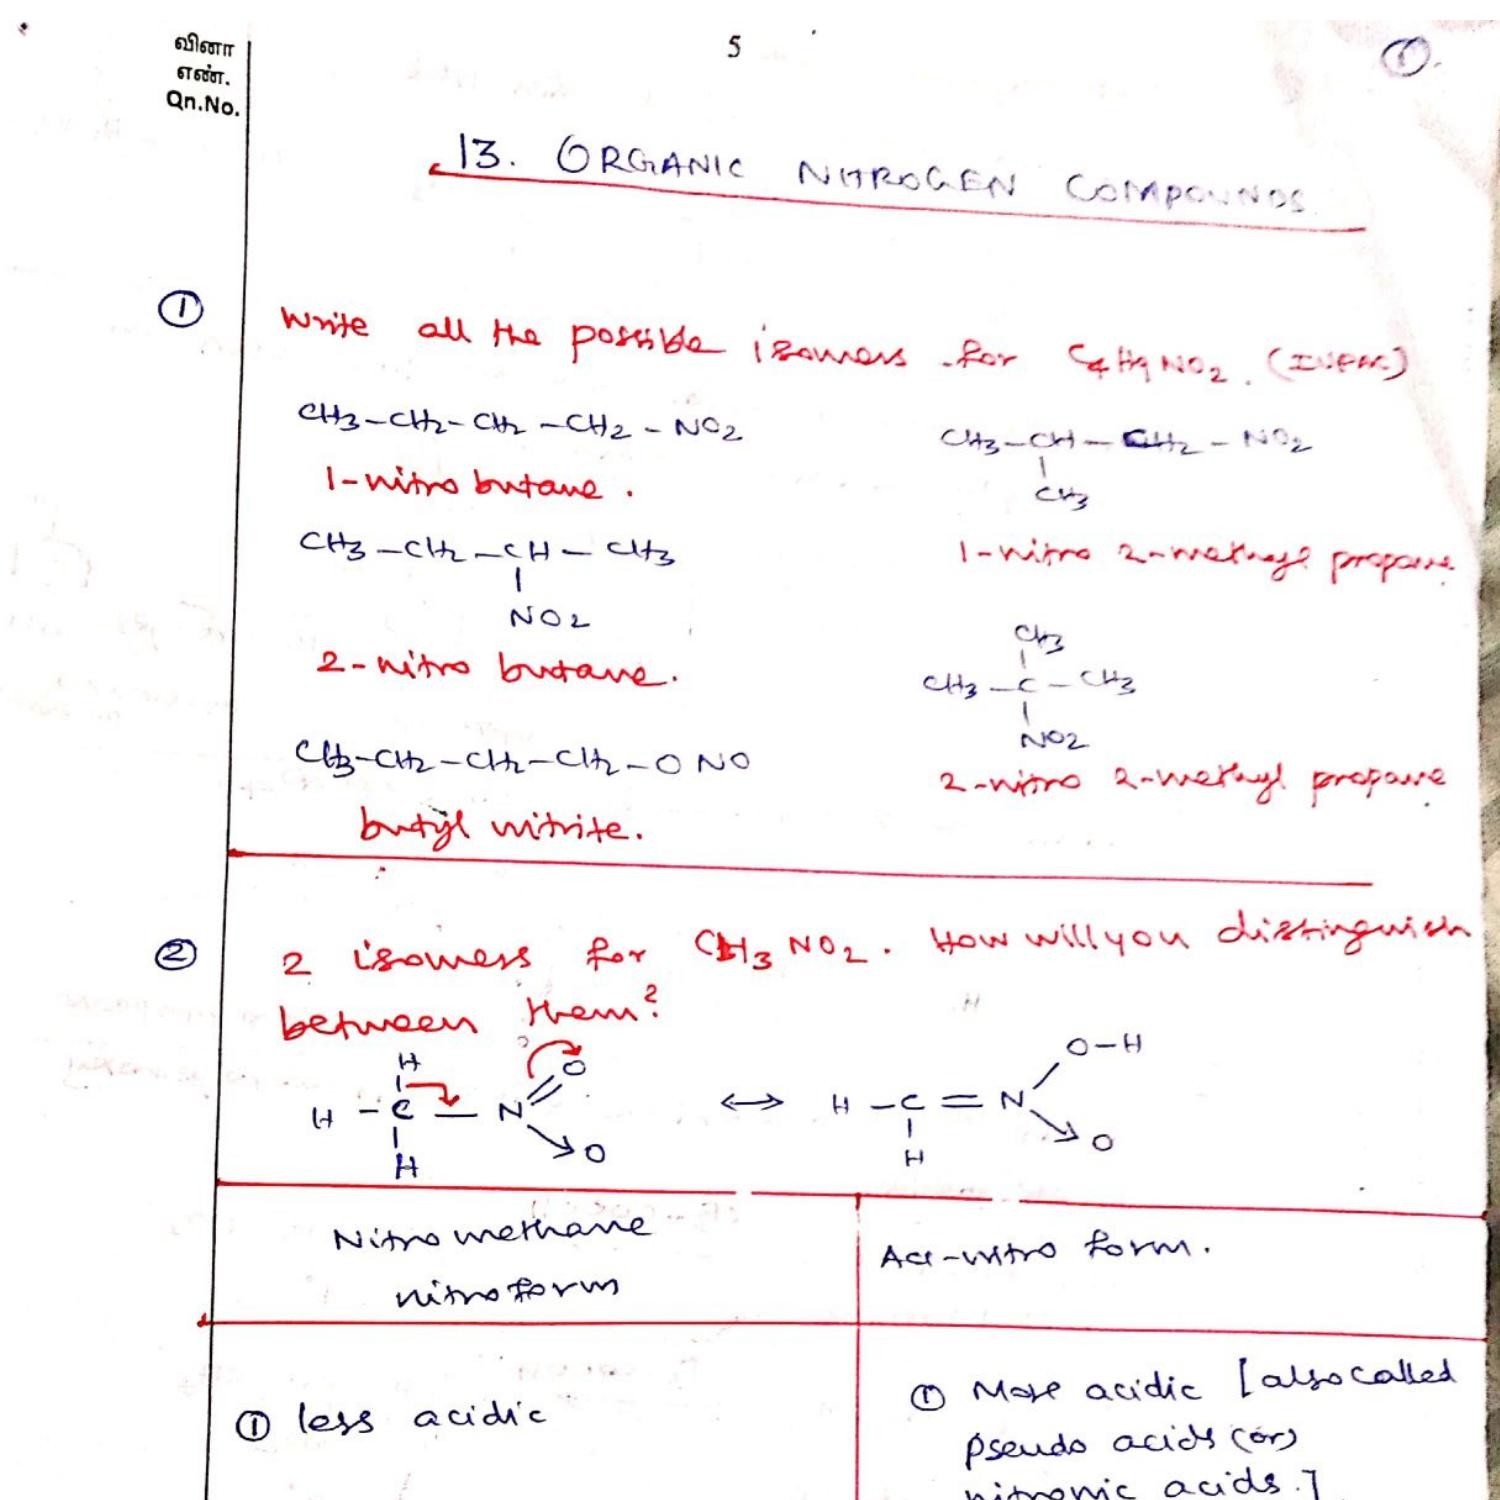 வினா
எண்.
Qn.No.
5
①.
13. ORGANIC NITROGEN COMPOUNDS
① Write all the possible isomers for C4H9NO2. (IUPAC)
CH3-CH2-CH2-CH2-NO2
1-nitro butane.
CH3-CH-CH2-NO2
CH3
1-nitro 2-methyl propane
CH3-CH2-CH-CH3
NO2
2-nitro butane.
CH3
CH3-C-CH3
NO2
2-nitro 2-methyl propane
CH3-CH2-CH2-CH2-O NO
butyl nitrite.
② 2 isomers for CH3NO2. How will you distinguish
between them?
H
H-C-N=O
O
H
↔
O-H
H-C=N
O
H
Nitro methane
nitro form
Aci-nitro form.
① less acidic
① More acidic [also called
pseudo acids (or)
nitronic acids.]